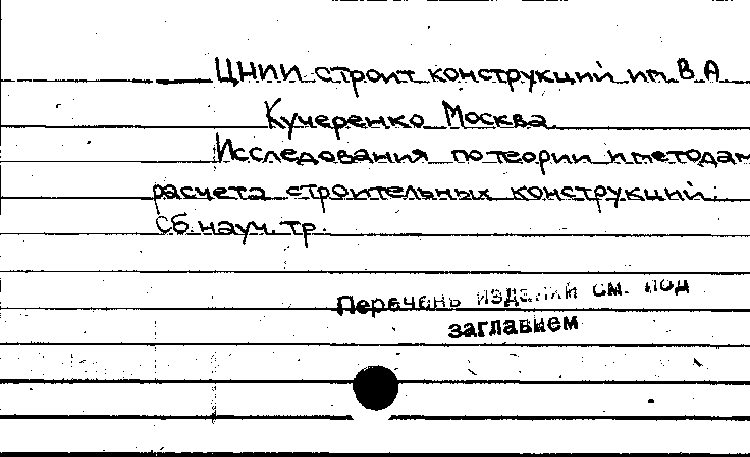 ЦНИИ строит конструкций им. В.А.
Кучеренко Москва
Исследования по теории и методам
расчета строительных конструкций:
Сб. науч. тр.
Перечень изданий см. под
заглавием